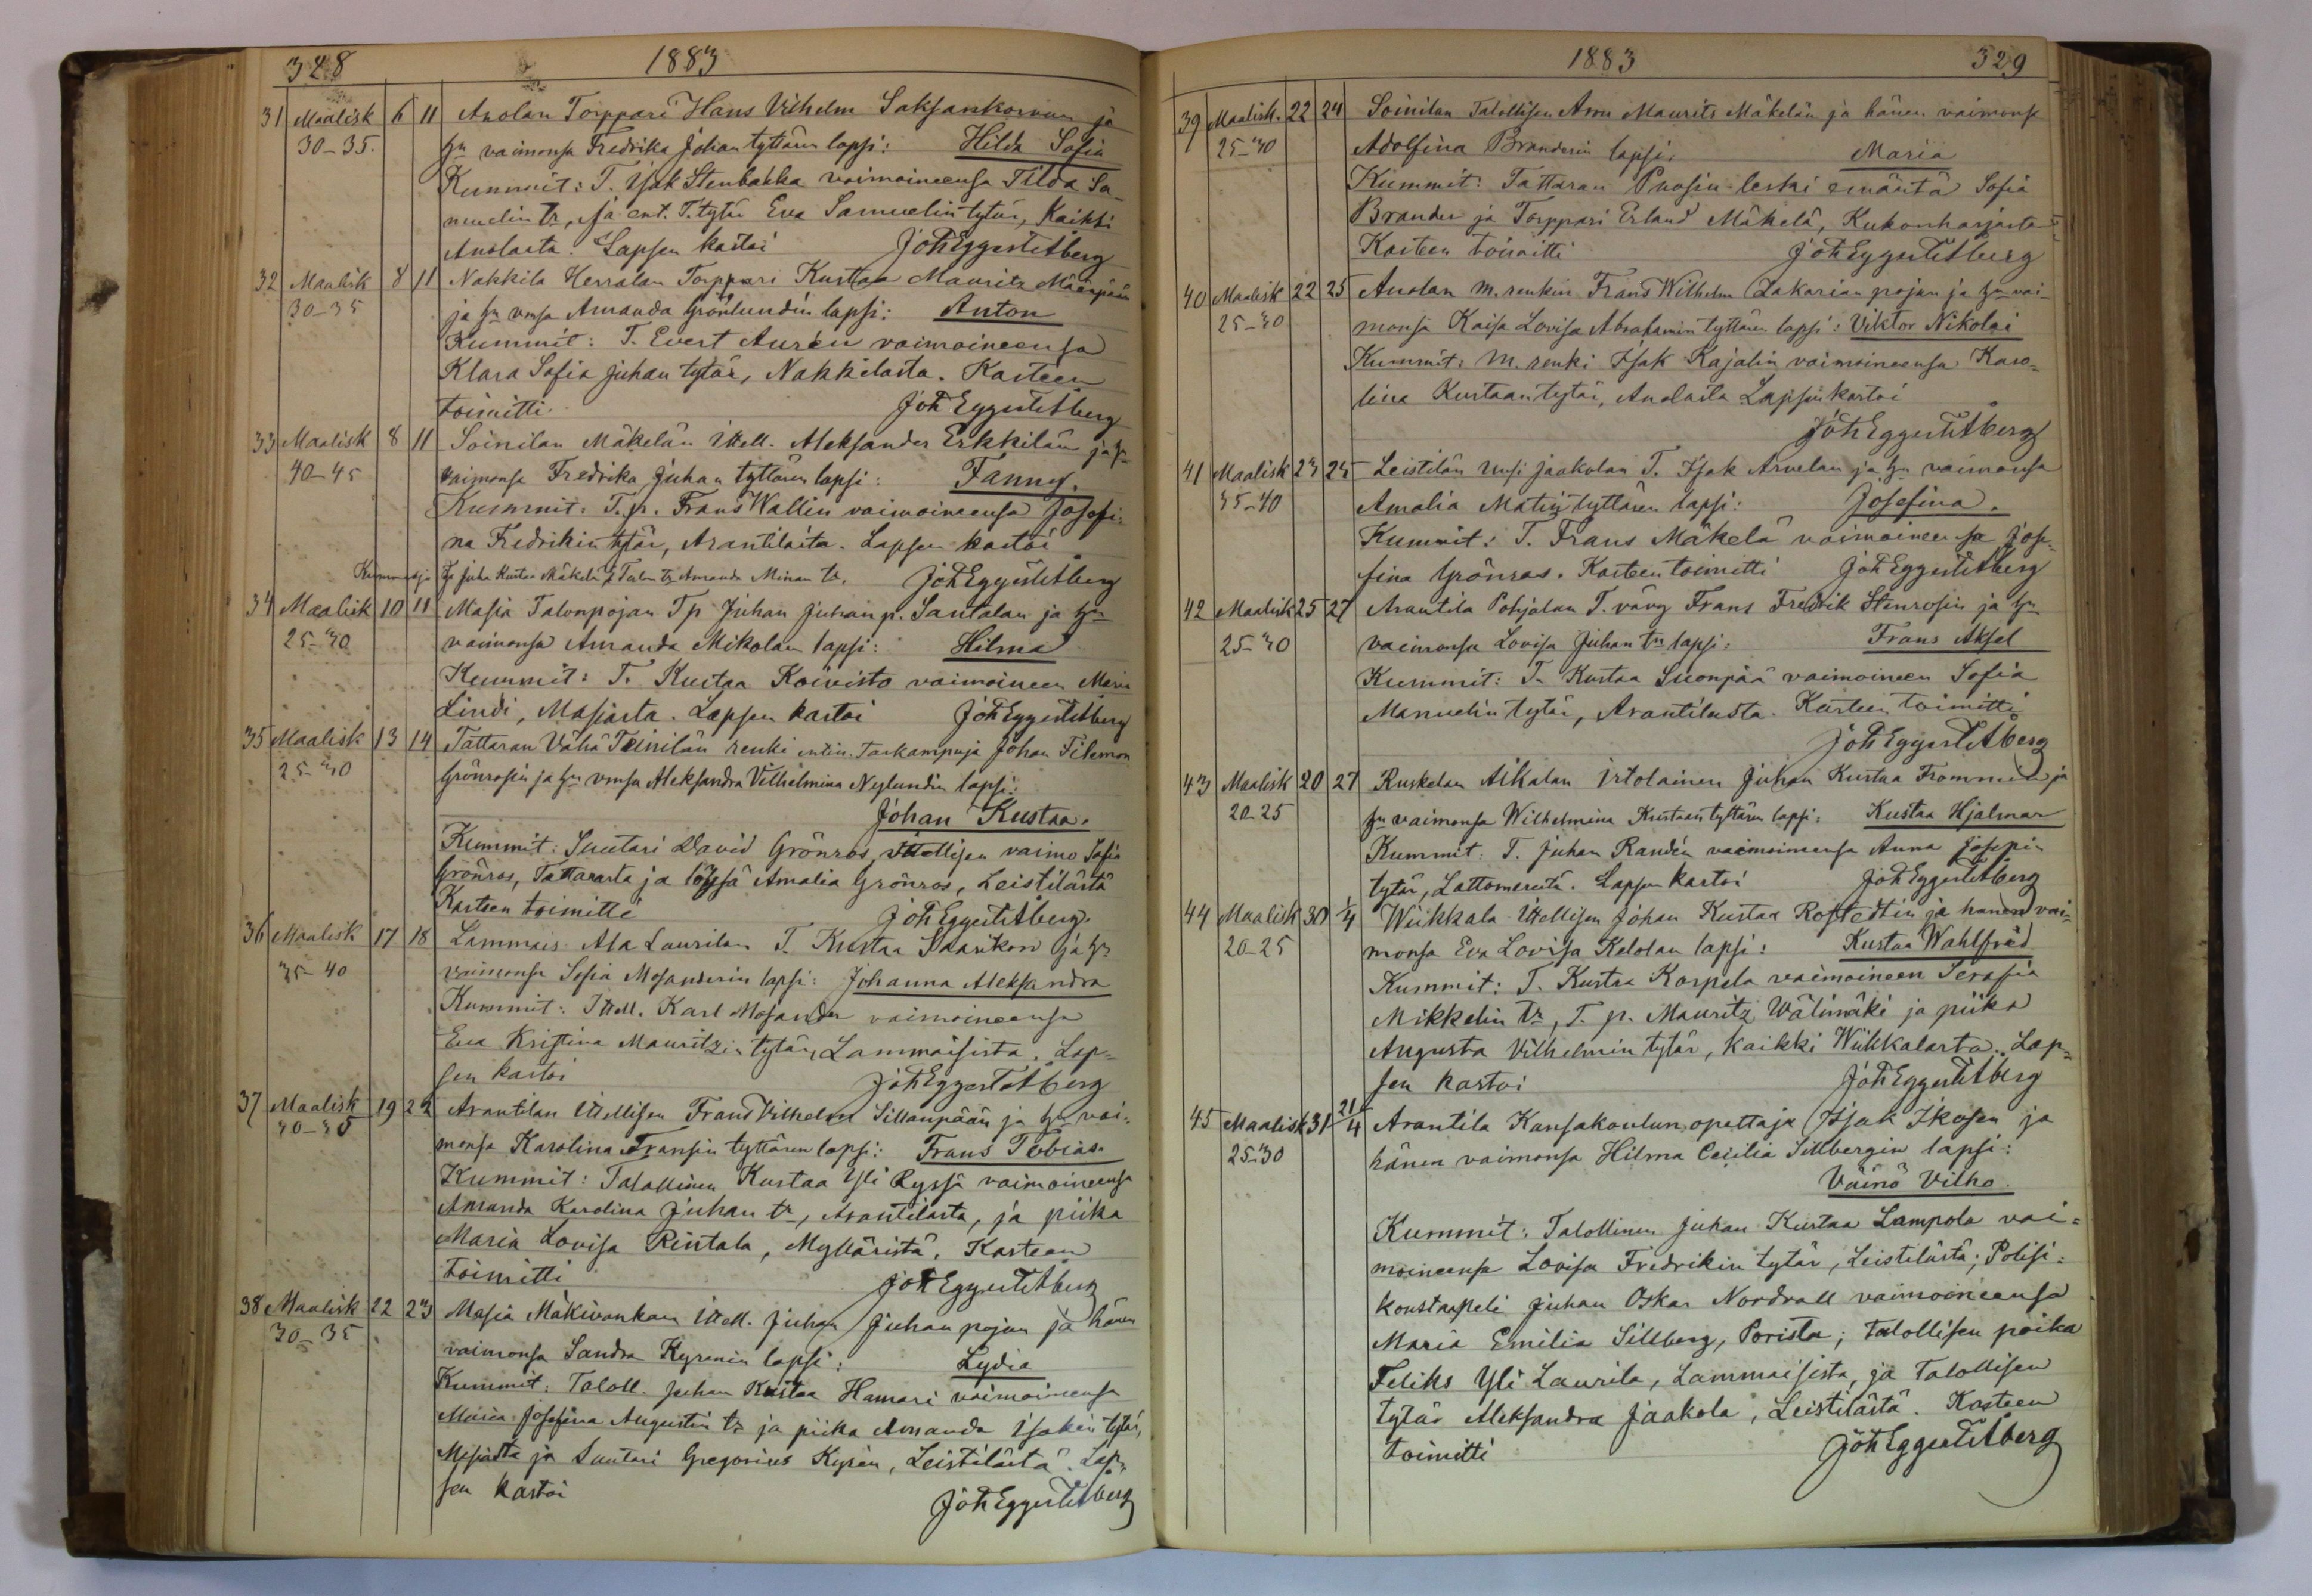 328 1883
31 Maalisk 6 11 Anolan Torppari Hans Vilhelm Saksankorvan ja
30-35. hn vaimonsa Fredrika Johan tyttären lapsi: Hilda Sofia
Kummit: T. Isak Stenbakka vaimoineensa Tilda Sa-
muelin tr, ja ent. T. tytär Eva Samuelin tytär, Kaikki
Anolasta. Lapsen kastoi Joh Eggert Åberg
32 Maalisk 8 11 Nakkila Herralan Torppari Kustaa Mauritz Määnpään
30-35 ja hn vmsa Amanda Grönlundin lapsi: Anton
Kummit: T. Evert Aurén vaimoineensa
Klara Sofia Juhan tytär, Nakkilasta. Kasteen
toimitti. Joh Eggert Åberg
33 Maalisk 8 11 Soinilan Mäkelän Itell. Aleksander Erkkilän ja hn
40-45 vaimonsa Fredrika Juhan tyttären lapsi: Fanny.
Kummit: T. p. Frans Wallin vaimoineensa Josefi-
na Fredrikin tytär, Arantilasta. Lapsen kastoi
Kummeja Tp Juha Kustaa Mäkelä, tr Amanda Minan tr. Joh Eggert Åberg
34 Maalisk 10 11 Masia Talonpojan Tp Juhan Juhan p. Santalan ja hn
25-30 vaimonsa Amanda Mikolan lapsi: Hilma
Kummit: T. Kustaa Koivisto vaimoineen Maria
Lindi, Masiasta. Lapsen kastoi Joh Eggert Åberg
35 Maalisk 13 14 Tattaran Vähä Teinilän renki entin. Tarkampuja Johan Filemon
25-30 Grönrosin ja hn vmsa Aleksandra Vilhelmina Nylundin lapsi:
Johan Kustaa.
Kummit: Suutari David Grönros, Itellisen vaimo Sofia
Grönros, Tattarasta ja löysä Amalia Grönros, Leistilästä
Kasteen toimitti Joh Eggert Åberg.
36 Maalisk 17 18 Lammais Ala Laurilan T. Kustaa Saarikon ja hn
35-40 vaimonsa Sofia Mosanderin lapsi: Johanna Aleksandra
Kummit: Itell. Karl Mosander vaimoineensa
Eva Kristina Mauritzin tytär, Lammaisista. Lap-
sen kastoi Joh Eggert Åberg
37 Maalisk 19 22 Arantilan Itellisen Frans Vilhelm Sillanpään ja hn vai-
30-35 monsa Karolina Fransin tyttären lapsi: Frans Tobias.
Kummit: Talollinen Kustaa Yli Ryssä vaimoineensa
Amanda Karolina Juhan tr, Arantilasta, ja piika
Maria Lovisa Rintala, Mylläristä. Kasteen
toimitti Joh Eggert Åberg
38 Maalisk 22 23 Masia Mäkivankan Itell. Juhan Juhan pojan ja hänen
30-35 vaimonsa Sandra Kyrenin lapsi: Lydia
Kummit: Taloll. Juhan Kustaa Hamari vaimoineensa
Maria Josefina Augustin tr ja piika Amanda Isakin tytär,
Masiasta ja Suutari Gregorius Kyrén, Leistilästä. Lap-
sen kastoi Joh Eggert Åberg
1883 329
39 Maalisk. 22 24 Soinilan Talollisen Arvi Maurits Mäkelän ja hänen vaimonsa
25-30 Adolfina Branderin lapsi: Maria
Kummit: Tattaran Puosin leski emäntä Sofia
Brander ja Torppari Erland Mäkelä, Kukonharjasta
Kasteen toimitti Joh Eggert Åberg
40 Maalisk 22 25 Anolan m. renkin Frans Wilhelm Zakarian pojan ja hn vai-
25-30 monsa Kaisa Lovisa Abrahamin tyttären lapsi: Viktor Nikolai
Kummit: M. renki Isak Kajalin vaimoineensa Karo-
lina Kustaan tytär, Anolasta Lapsen kastoi
Joh Eggert Åberg
41 Maalisk 23 25 Leistilän Uusi Jaakolan T. Isak Arvelan ja hn vaimonsa
35-40 Amalia Matin tyttären lapsi: Josefina.
Kummit: T. Frans Mäkelä vaimoineensa Jose-
fina Grönroos. Kasteen toimitti Joh Eggert Åberg
42 Maalisk 25 27 Arantila Pohjalan T. vävy Frans Fredrik Stenrosin ja hn
25-30 vaimonsa Lovisa Juhan trn lapsi: Frans Aksel
Kummit: T. Kustaa Suonpää vaimoineen Sofia
Manuelin tytär, Arantilasta. Kasteen toimitti
Joh Eggert Åberg
43 Maalisk 20 27 Ruskelan Aikalan irtolainen Juhan Kustaa Frommin ja
20-25 hn vaimonsa Wilhelmina Kustaan tyttären lapsi: Kustaa Hjalmar
Kummit: T. Juhan Randén vaimoineensa Anna Josepin
tytär, Lattomereltä. Lapsen kastoi Joh Eggert Åberg
44 Maalisk 30 1/4 Wiikkala Itellisen Johan Kustaa Rostedtin ja hänen vai-
20-25 monsa Eva Lovisa Kelolan lapsi: Kustaa Wahlfrid
Kummit: T. Kustaa Korpela vaimoineen Serafia
Mikkelin tr, T. p. Mauritz Wälimäki ja piika
Augusta Vilhelmin tytär, kaikki Wiikkalasta. Lap-
sen kastoi Joh Eggert Åberg
45 Maalisk 31 21/4 Arantila Kansakoulun opettaja Isak Ikosen ja
25-30 hänen vaimonsa Hilma Cecilia Sillbergin lapsi:
Väinö Vilho.
Kummit: Talollinen Juhan Kustaa Lampola vai-
moineensa Lovisa Fredrikin tytär, Leistilästä; Polisi-
konstaapeli Juhan Oskar Nordvall vaimoineensa
Maria Emilia Sillberg, Porista; talollisen poika
Feliks Yli Laurila, Lammaisista, ja Talollisen
tytär Aleksandra Jaakola, Leistilästä. Kasteen
toimitti Joh Eggert Åberg